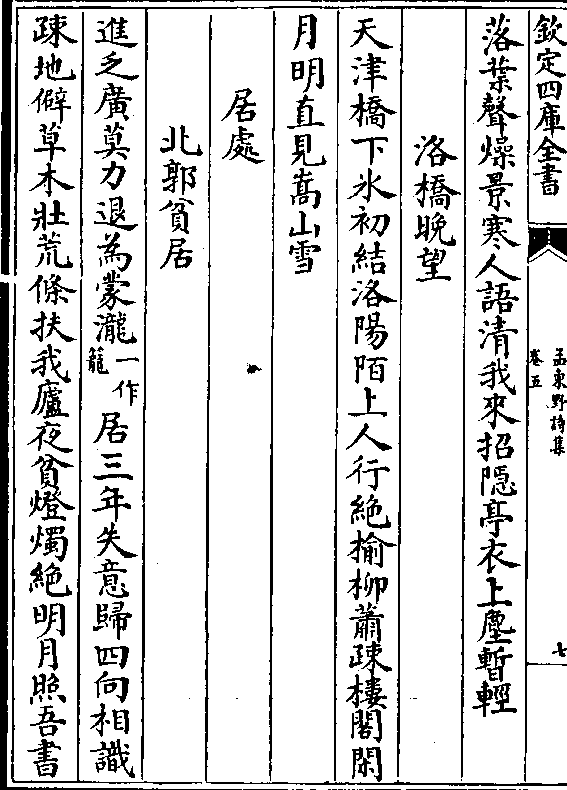 欽定四庫全書
孟東野詩集
卷五
七
落葉聲燥景寒人語清我來招隠亭衣上塵暫輕
洛橋晚望
天津橋下氷初結洛陽陌上人行絶榆柳蕭疎樓閣閑
月明直見嵩山雪
居處
北郭貧居
進乏廣莫力退為蒙瀧一作籠居三年失意歸四向相識
疎地僻草木壯荒條扶我廬夜貧燈燭絶明月照吾書